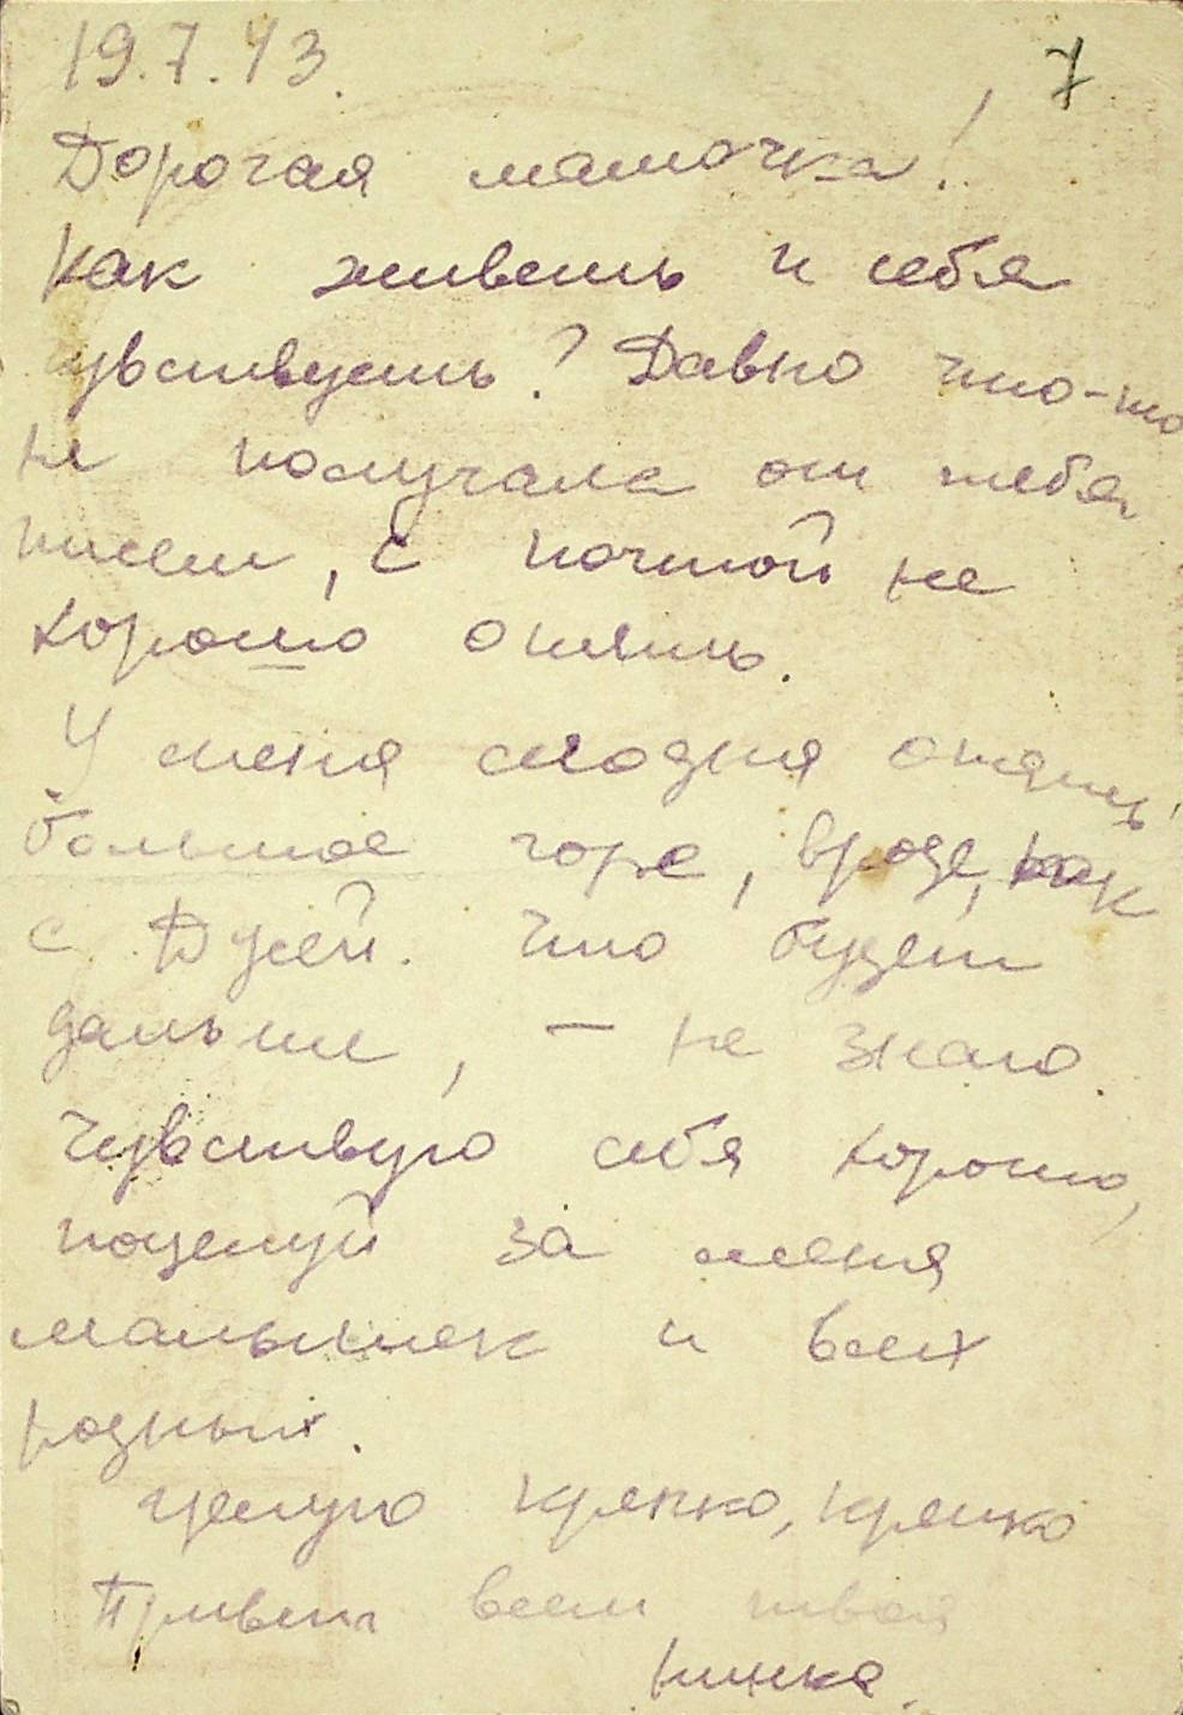 19.7.43.
7
Дорогая мамочка!
Как живешь и себя
чувствуешь? Давно что-то
не получала от тебя
писем, с почтой не
хорошо опять.
У меня сегодня опять
большое горе, вроде, как
с Дусей. Что будет
дальше, – не знаю.
Чувствую себя хорошо,
поцелуй за меня
малышек и всех
родных.
Целую крепко, крепко
Привет всем твоя
Нинка.